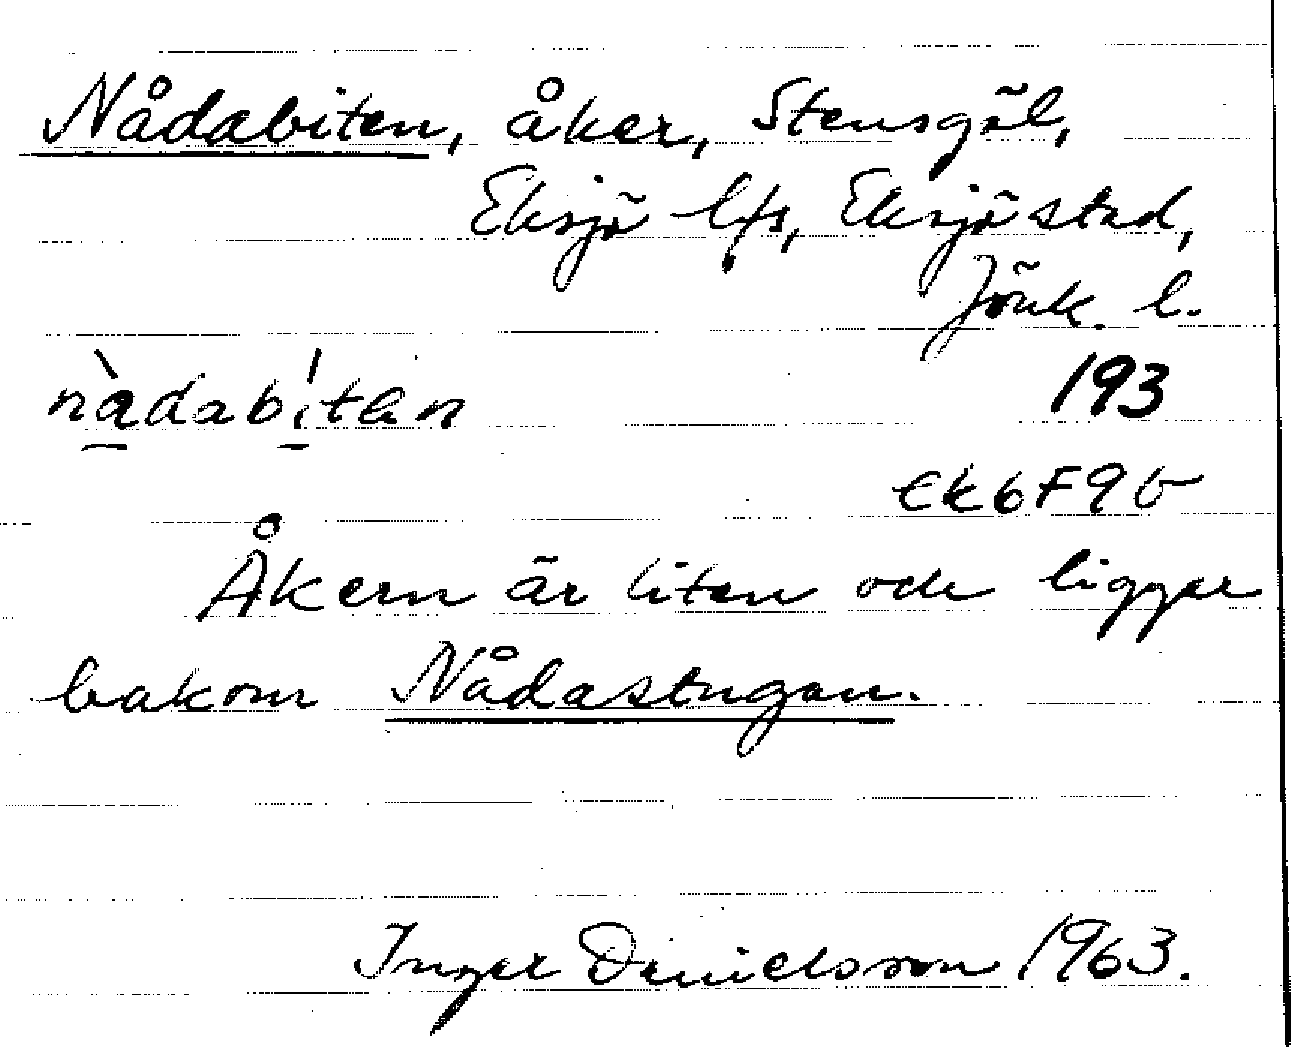 Nådabiten, åker, Stensgöl,
Eksjö lfs, Eksjö stad,
Jönk. l.
nàdabi̍tan
193
Ek6F9b
Åkern är liten och ligger
bakom Nådastugan.
Inger Danielsson 1963.